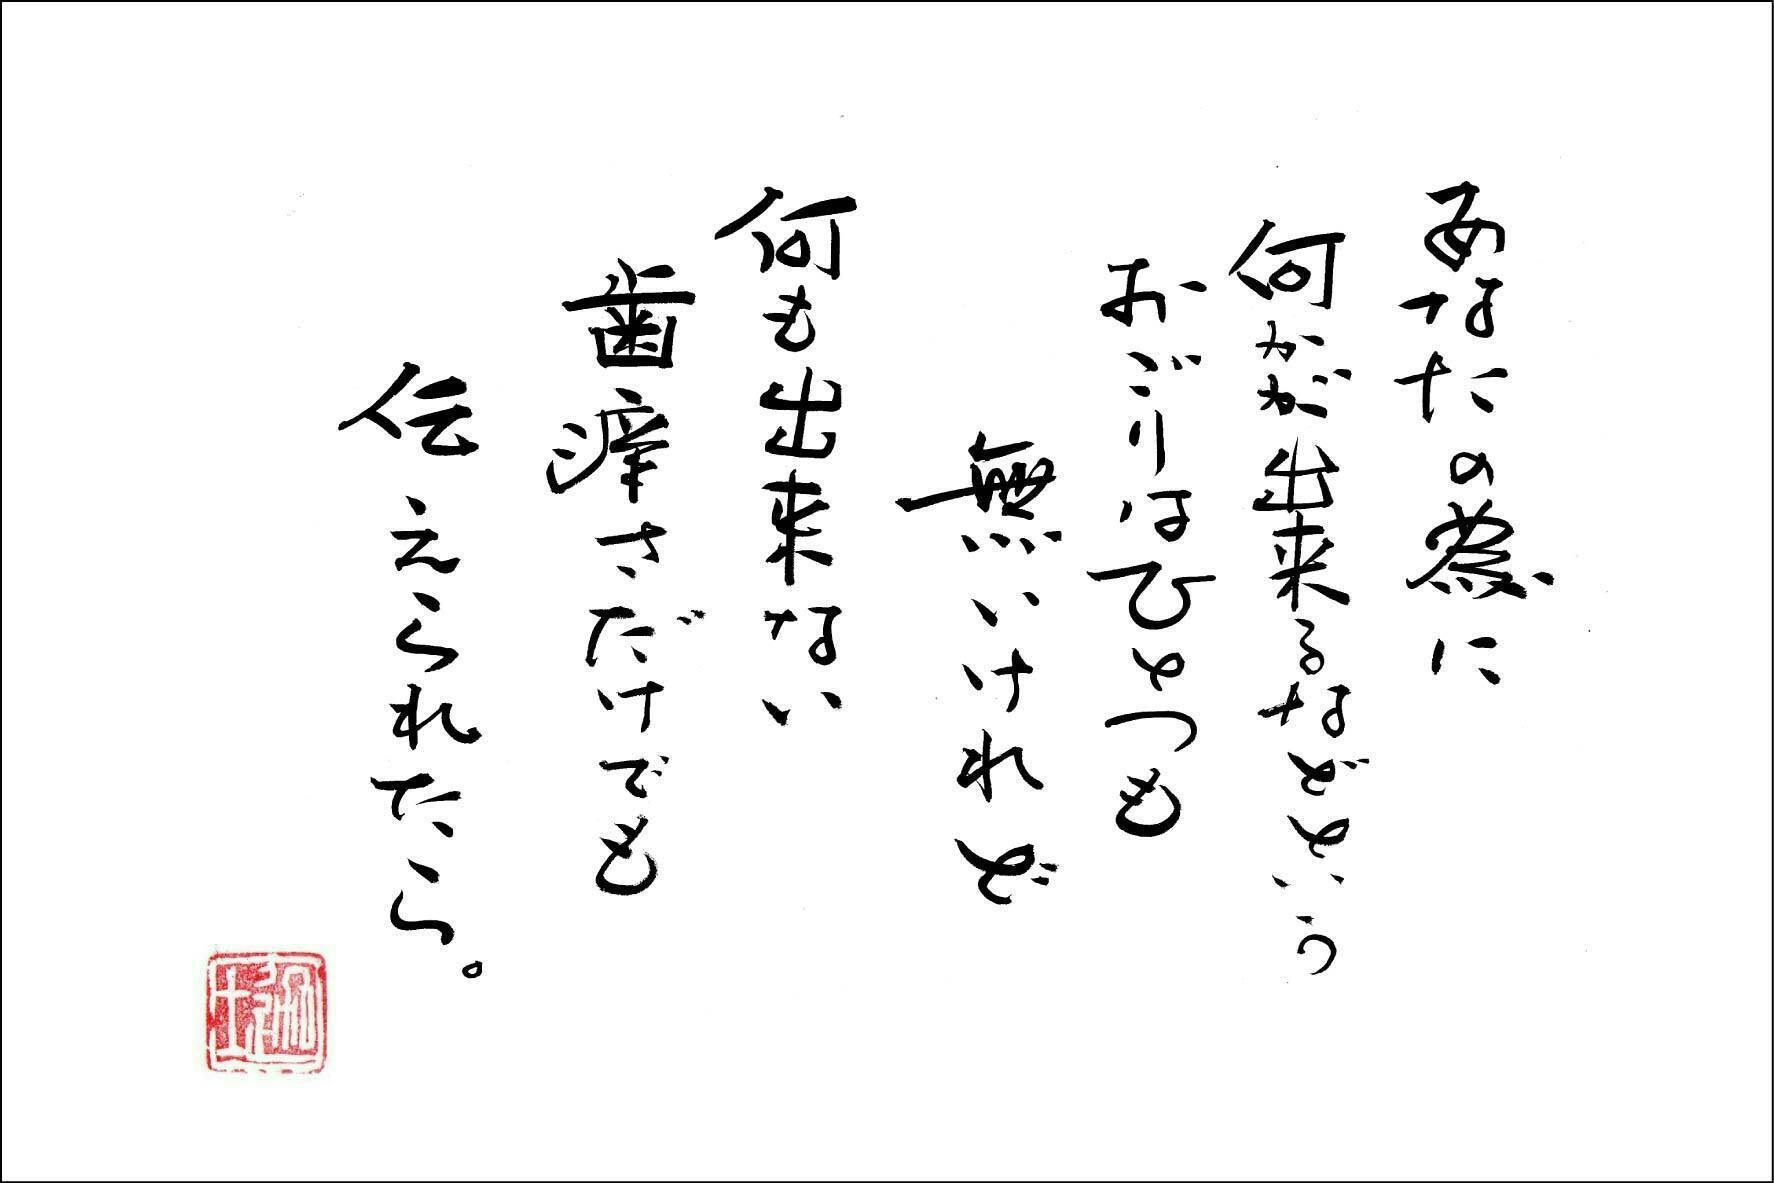 あなたの為に
何かが出来るなどという
おごりはひとつも
無いけれど
何も出来ない
歯痒さだけでも
伝えられたら。